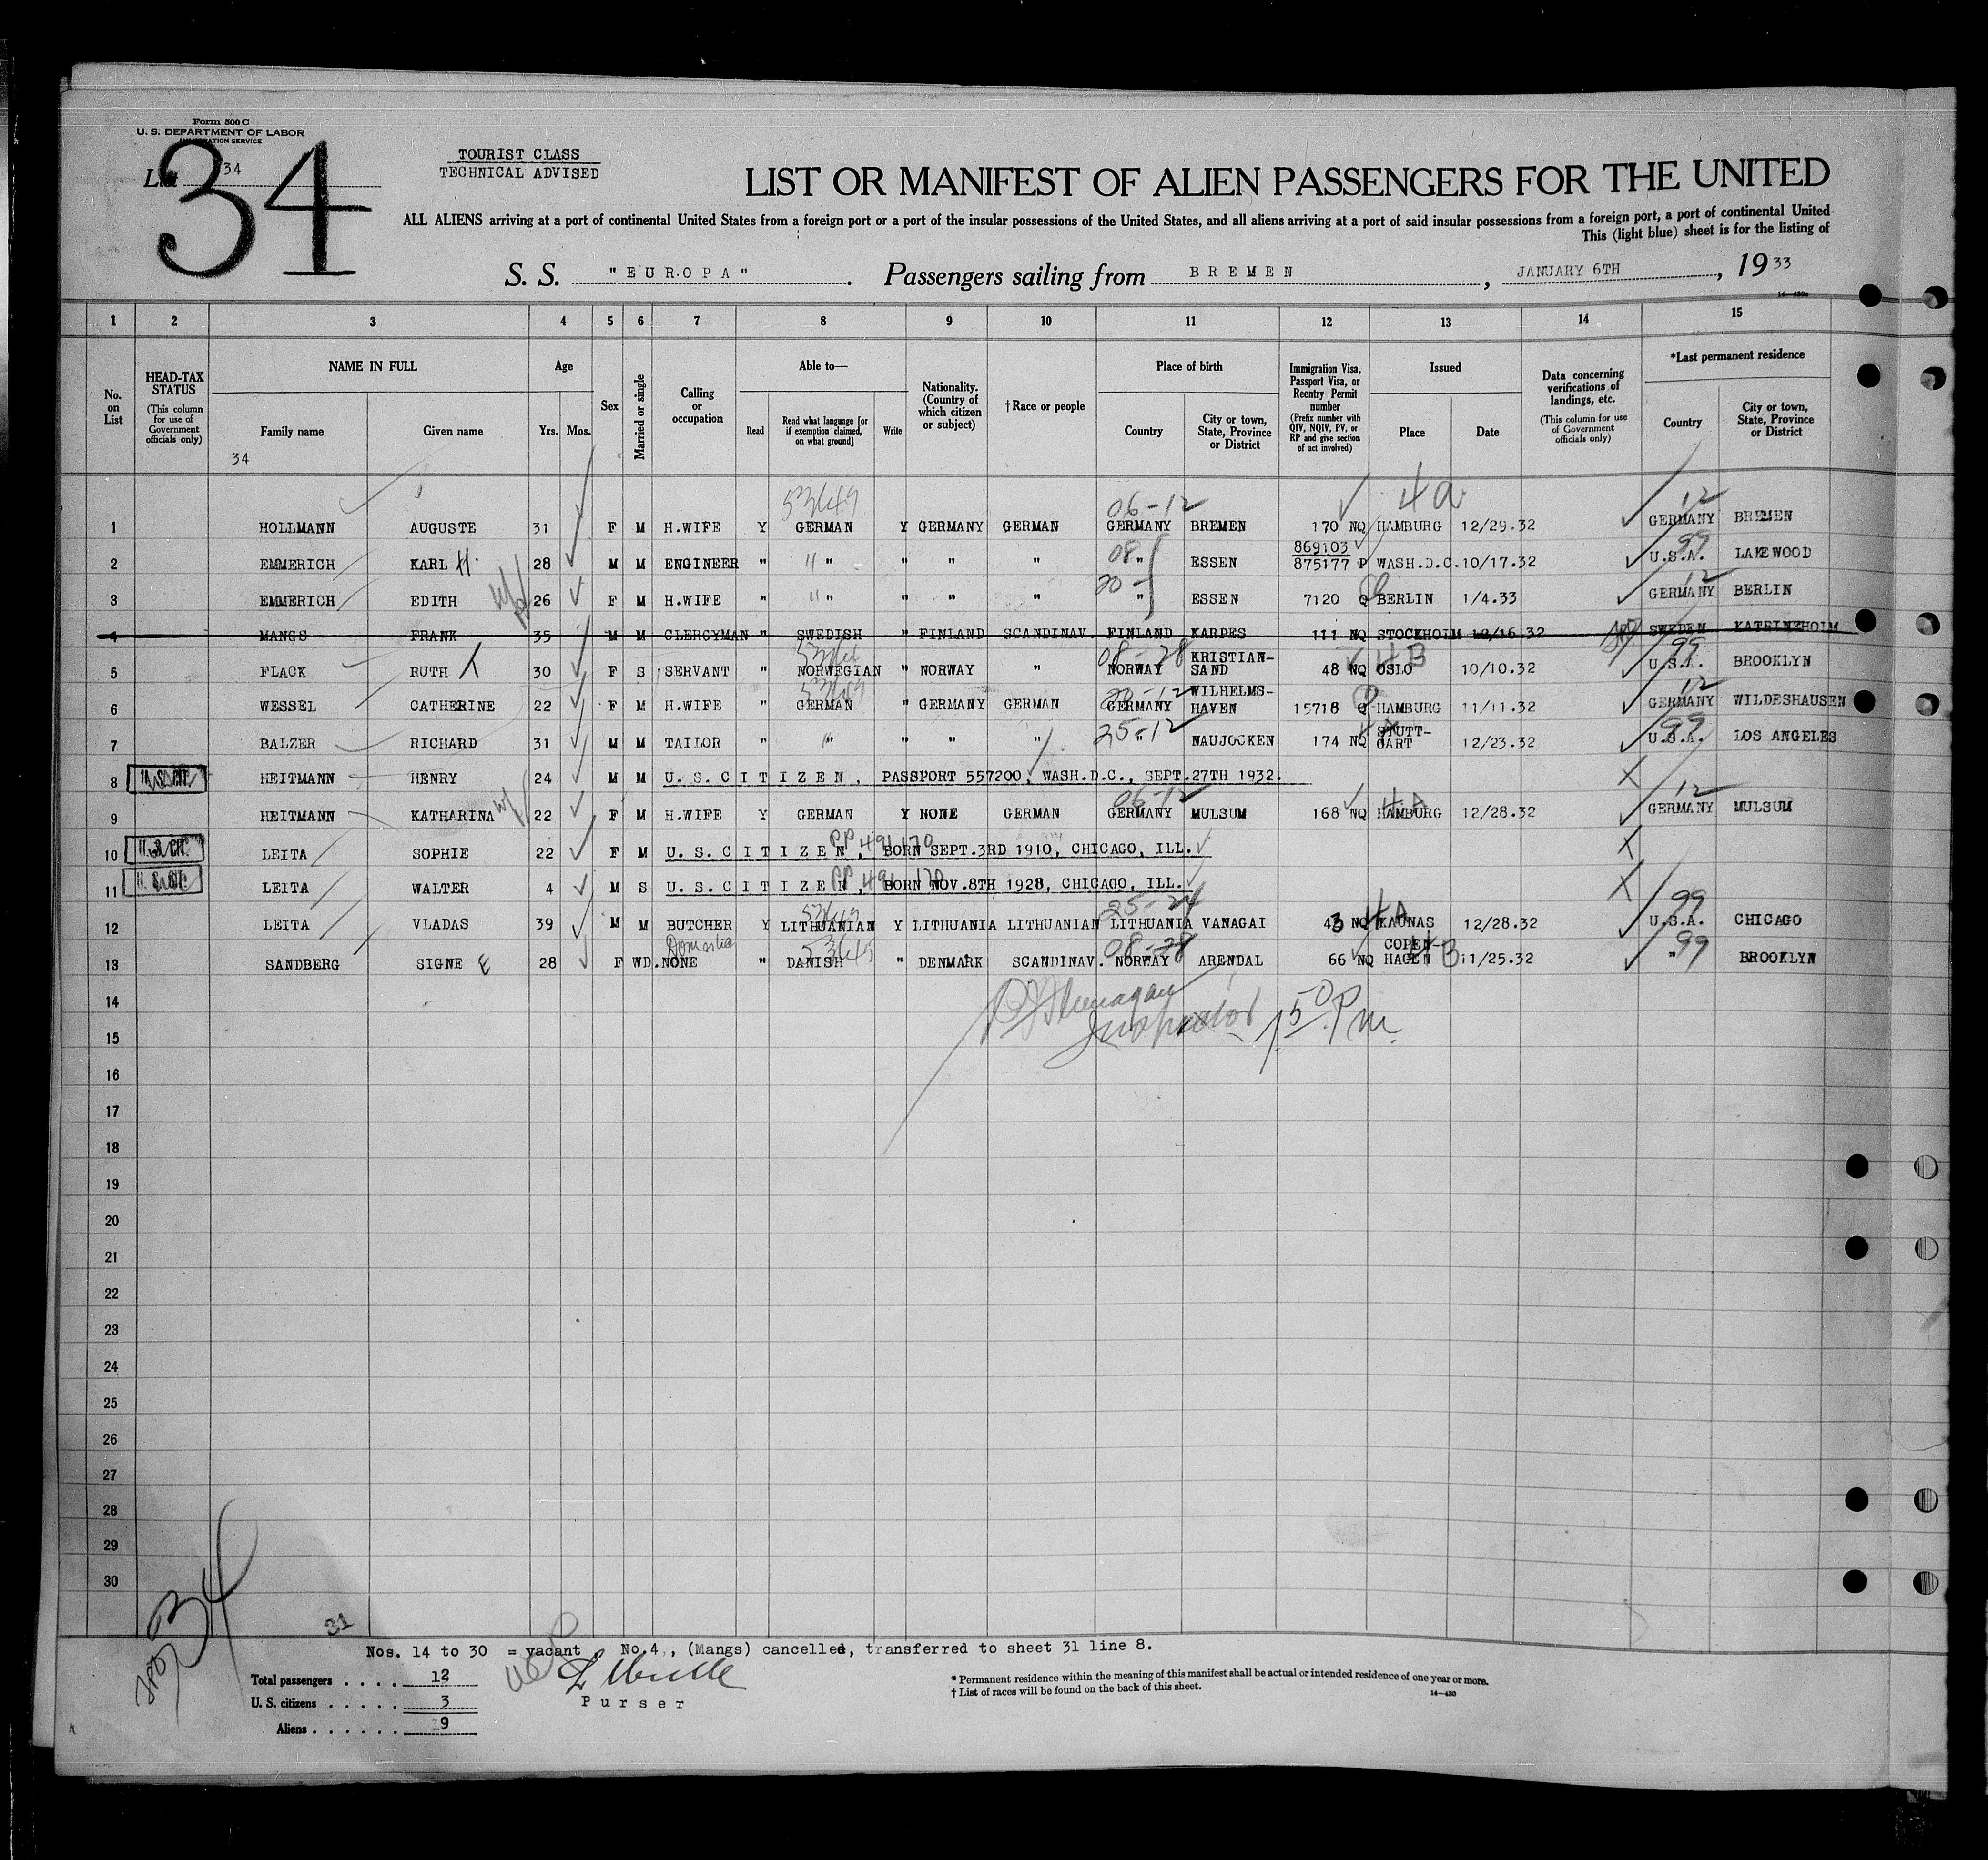 Form 500 C
U. S. DEPARTMENT OF LABOR
IMMIGRATION SERVICE
List 34
34
TOURIST CLASS
TECHNICAL ADVISED
LIST OR MANIFEST OF ALIEN PASSENGERS FOR THE UNITED
ALL ALIENS arriving at a port of continental United States from a foreign port or a port of the insular possessions of the United States, and all aliens arriving at a port of said insular possessions from a foreign port, a port of continental United
This (light blue) sheet is for the listing of
S. S. "EUROPA". Passengers sailing from BREMEN, JANUARY 6TH, 1933
1 2 3 4 5 6 7 8 9 10 11 12 13 14 15
No. on List
HEAD-TAX STATUS (This column for use of Government officials only)
NAME IN FULL Family name Given name
Age Yrs. Mos.
Sex
Married or single
Calling or occupation
Able to— Read Read what language [or if exemption claimed, on what ground] Write
Nationality. (Country of which citizen or subject)
† Race or people
Place of birth Country City or town, State, Province or District
Immigration Visa, Passport Visa, or Reentry Permit number (Prefix number with QIV, NQIV, PV, or RP and give section of act involved)
Issued Place Date
Data concerning verifications of landings, etc. (This column for use of Government officials only)
*Last permanent residence Country City or town, State, Province or District
34
53649 06-12 4a 12
1 HOLLMANN AUGUSTE 31 F M H.WIFE Y GERMAN Y GERMANY GERMAN GERMANY BREMEN 170 NQ HAMBURG 12/29.32 GERMANY BREMEN
2 EMMERICH KARL H. 28 M M ENGINEER " " " " " 08 " ESSEN 869103 875177 P WASH.D.C. 10/17.32 99 U.S.A. LAKEWOOD
3 EMMERICH EDITH 26 F M H.WIFE " " " " " 20- " ESSEN 7120 Q BERLIN 1/4.33 12 GERMANY BERLIN
4 MANGS FRANK 35 M M CLERGYMAN " SWEDISH " FINLAND SCANDINAV. FINLAND KARPES 111 NQ STOCKHOLM 12/16.32 SWEDEN KATRINEHOLM
5 FLACK RUTH 30 F S SERVANT " NORWEGIAN " NORWAY " 08-28 NORWAY KRISTIAN-SAND 48 NQ 4B OSLO 10/10.32 99 U.S.A. BROOKLYN
6 WESSEL CATHERINE 22 F M H.WIFE " 53649 GERMAN " GERMANY GERMAN 20-12 GERMANY WILHELMS-HAVEN 15718 Q HAMBURG 11/11.32 12 GERMANY WILDESHAUSEN
7 BALZER RICHARD 31 M M TAILOR " " " " " 25-12 " NAUJOCKEN 174 NQ STUTT-GART 12/23.32 99 U.S.A. LOS ANGELES
8 U.S. CIT. HEITMANN HENRY 24 M M U.S.CITIZEN, PASSPORT 557200, WASH.D.C., SEPT.27TH 1932.
9 HEITMANN KATHARINA 22 F M H.WIFE Y GERMAN Y NONE GERMAN 06-12 GERMANY MULSUM 168 NQ 4A HAMBURG 12/28.32 12 GERMANY MULSUM
10 U.S. CIT. LEITA SOPHIE 22 F M U.S.CITIZEN, PP 491170 BORN SEPT.3RD 1910, CHICAGO, ILL.
11 U.S. CIT. LEITA WALTER 4 M S U.S.CITIZEN, PP 491170 BORN NOV.8TH 1928, CHICAGO, ILL.
12 LEITA VLADAS 39 M M BUTCHER Y 53649 LITHUANIAN Y LITHUANIA LITHUANIAN 25-24 LITHUANIA VANAGAI 43 NQ 4A KAUNAS 12/28.32 99 U.S.A. CHICAGO
13 SANDBERG SIGNE E 28 F WD. Domestic NONE " 53645 DANISH " DENMARK SCANDINAV. 08-28 NORWAY ARENDAL 66 NQ 4B COPEN-HAGEN 11/25.32 " 99 BROOKLYN
14
Inspector 1.50 P.m.
15
16
17
18
19
20
21
22
23
24
25
26
27
28
29
30
34
31
Nos. 14 to 30 = vacant No.4., (Mangs) cancelled, transferred to sheet 31 line 8.
Total passengers . . . . 12
U. S. citizens . . . . . 3
Aliens . . . . . . 9
Purser
* Permanent residence within the meaning of this manifest shall be actual or intended residence of one year or more.
† List of races will be found on the back of this sheet.
14—430